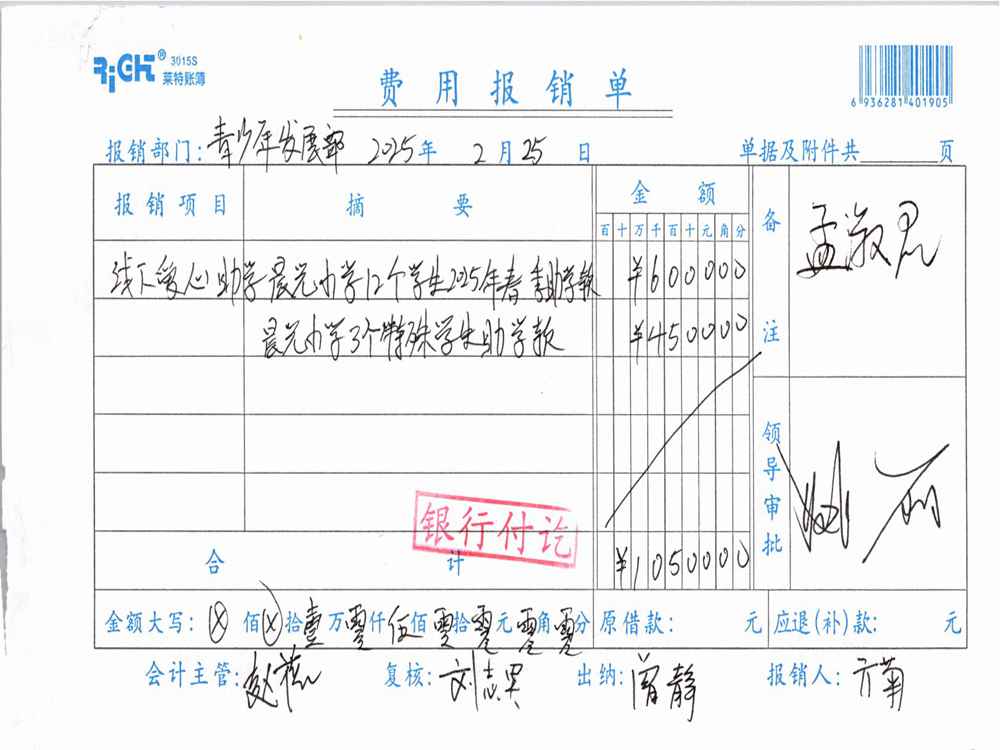 RiGHT® 3015S
莱特账簿
费用报销单
6 936281 401905
报销部门：青少年发展部 2025年 2月25日 单据及附件共 页
报销项目 摘要 金额 备注
百十万千百十元角分
孟淑君
线下爱心助学晨光办学12个学生2025年春季助学款 ¥600000
晨光办学3个特殊学生助学款 ¥450000
领导审批
姚丽
银行付讫
合计 ¥1050000
金额大写：ⓧ佰ⓧ拾壹万零仟伍佰零拾零元零角零分 原借款： 元 应退(补)款： 元
会计主管： 复核：刘志昊 出纳：曾静 报销人：方菊